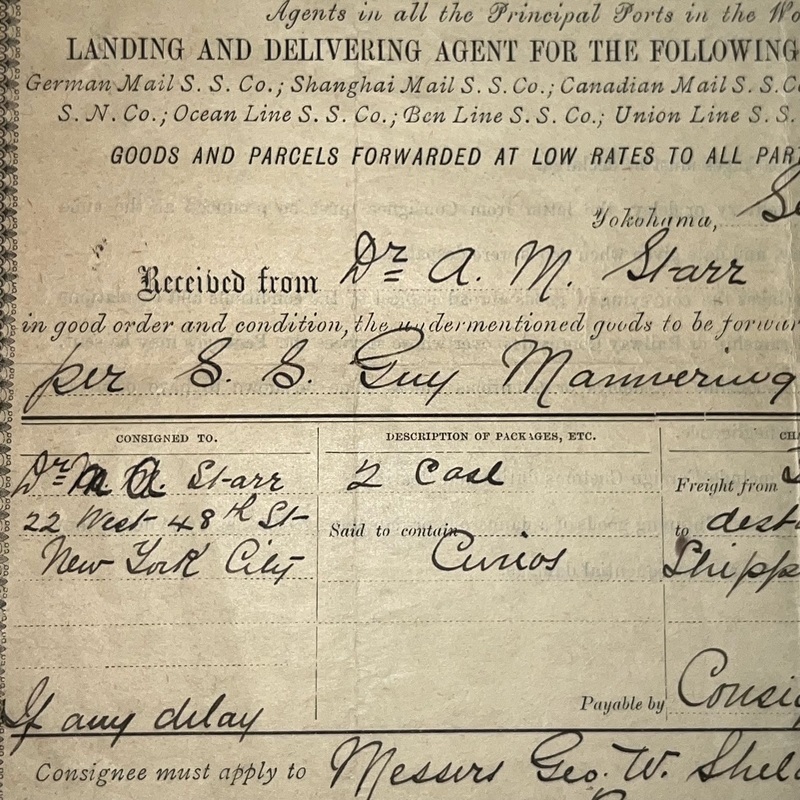 Agents in all the Principal Ports in the Wo
LANDING AND DELIVERING AGENT FOR THE FOLLOWING
German Mail S. S. Co.; Shanghai Mail S. S. Co.; Canadian Mail S. S. C
S. N. Co.; Ocean Line S. S. Co.; Ben Line S. S. Co.; Union Line S. S.
GOODS AND PARCELS FORWARDED AT LOW RATES TO ALL PAR
Yokohama, Se
Received from Dr A. M. Starr
in good order and condition, the undermentioned goods to be forwar
per S. S. Guy Mannering
CONSIGNED TO. DESCRIPTION OF PACKAGES, ETC. CH
Dr M A. Starr 2 Case Freight from
22 West 48th St Said to contain to dest
New York City Curios Shipp
Payable by Consig
If any delay
Consignee must apply to Messers Geo. W. Shel